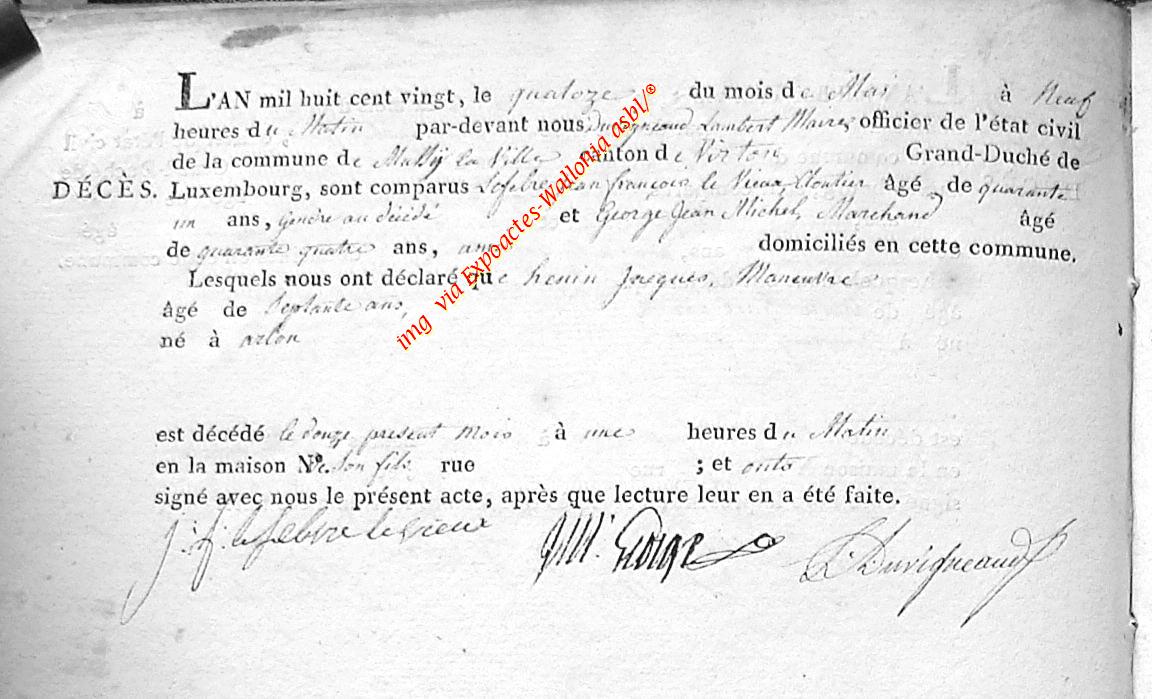 L'AN mil huit cent vingt, le quatoze du mois de Mai à Neuf
heures du Matin par-devant nous Duvigneaud Lambert Maire, officier de l'état civil
de la commune de Mussy la Ville canton de Virton Grand-Duché de
DÉCÈS. Luxembourg, sont comparus Lefebre Jean françois le Vieux Cloutier âgé de quarante
un ans, Gendre au décédé et George Jean Michel, Marchand âgé
de quarante quatre ans, ami domiciliés en cette commune.
Lesquels nous ont déclaré que henin Jacques, Maneuvre
âgé de Septante ans,
né à arlon
est décédé le douze present mois à une heures du Matin
en la maison Nº. de son fils rue ; et onts
signé avec nous le présent acte, après que lecture leur en a été faite.
j. f. lefebvre levieux JM. George L. Duvigneaud
img via Expoactes-Wallonia asbl/®